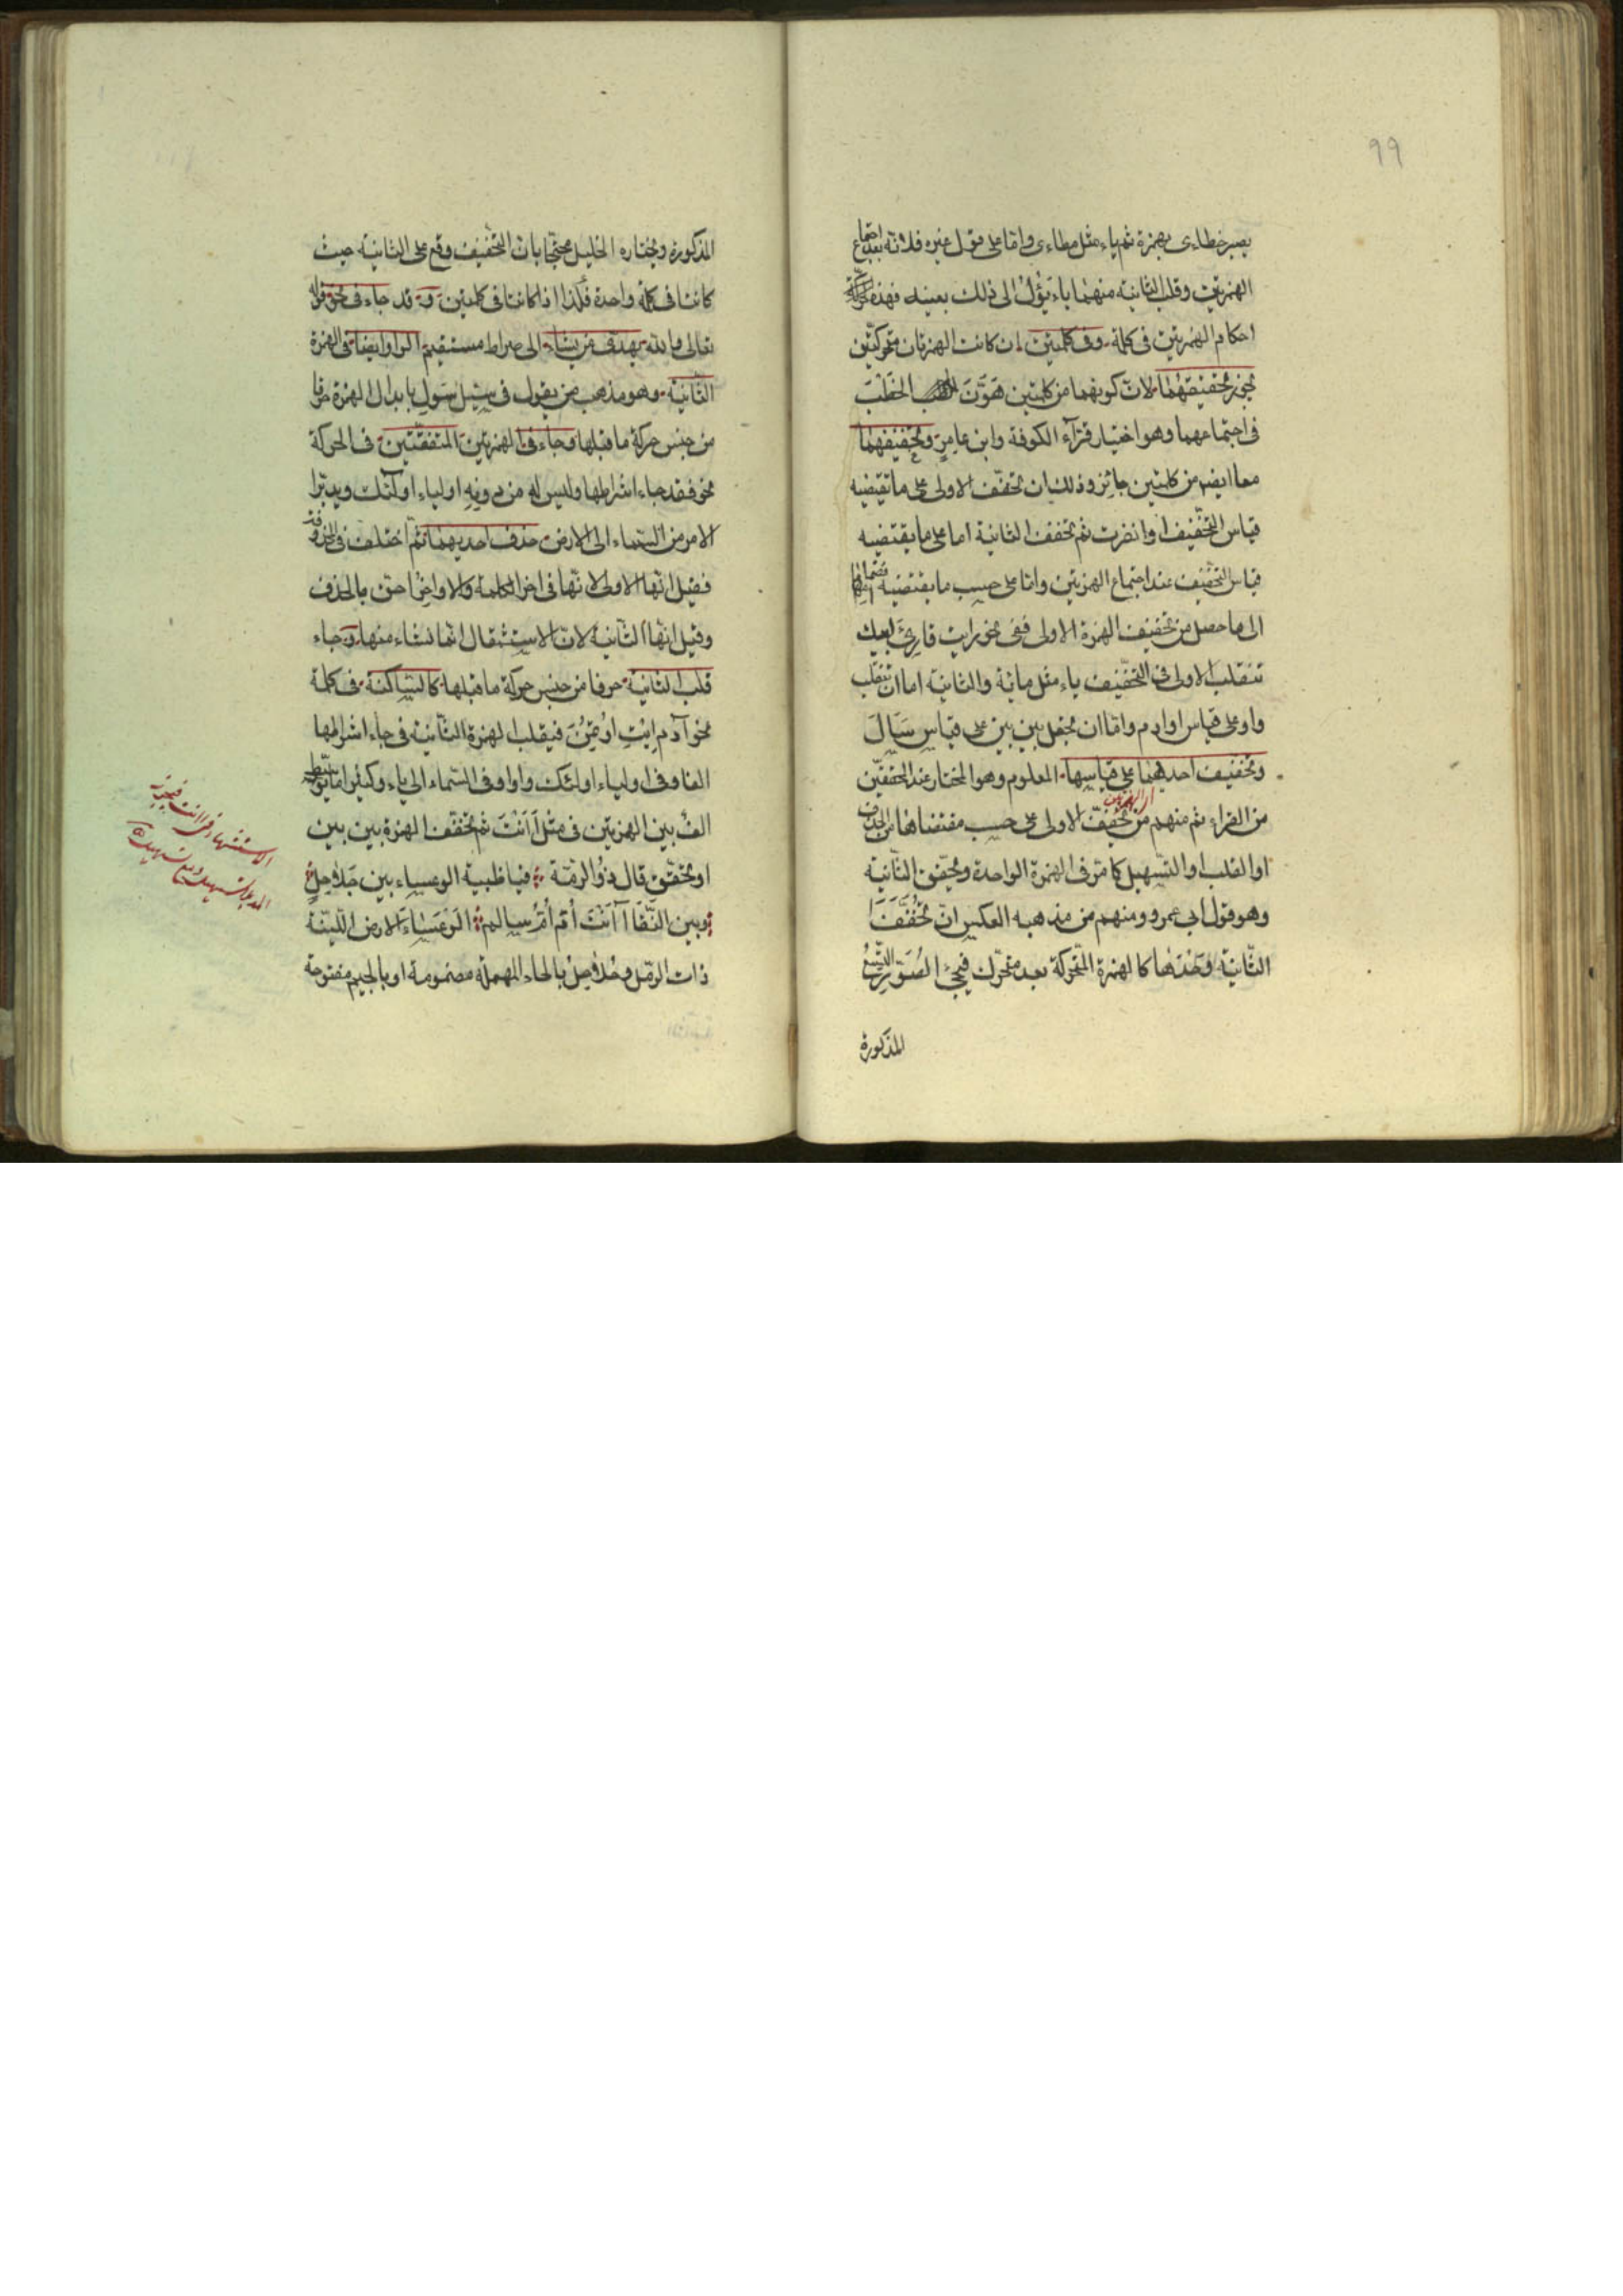 ٩٩
يصير خطاءى بهمزة ثم ياء مثل مطاءى واما على قول غيره فلانه بعد اجتماع
الهمزتين وقلب الثانية منهما ياء يؤل الى ذلك بعينه فهذه
احكام الهمزتين فى كلمة وفى كلمتين ان كانت الهمزتان متحركتين
يجوز تحقيقهما لان كونهما من كلمتين هَوَّنَ الخطب
فى اجتماعهما وهو اختيار قرّآء الكوفة وابن عامرٍ وتخفيفهما
معا ايضا من كلمتين جائز وذلك بان تخفّف الاولى على ما تقتضيه
قياس التخفيف لو انفردت ثم تخفف الثانية اما على ما يقتضيه
قياس التخفيف عند اجتماع الهمزتين واما على حسب ما يقتضيه
الى ما حصل من تخفيف الهمزة الاولى ففى نحو رايت قارئَ ابيك
تنقلب الاولى فى التخفيف ياء مثل ماية والثانية اما ان تنقلب
واو على قياس اوادم واما ان يجعل بين بين على قياس سَأَلَ
وتخفيف احديهما على قياسها المعلوم وهو المختار عند المحققين
من القراء ثم منهم من تخفيف الاولى على حسب مقتضاها من الحذف
او القلب او التسهيل كما مرّ فى الهمزة الواحدة وتحقيق الثانية
وهو قول ابى عمرو ومنهم من مذهبه العكس ان تُخَفَّفَ
الثانية وَحْدَها كالهمزة المتحركة بعد متحرّك فيجئ الصُوَر التسع
المذكورة
المذكورة ويختاره الخليل محتجّا بان التخفيف وقع على الثانية حيث
كانتا فى كلمة واحدة فكذا اذا كانتا فى كلمتين وقد جاء فى نحو قوله
تعالى والله يهدى من يشاء الى صراط مستقيم الواو ايضا فى الهمزة
الثانية وهو مذهب من يقول فى سُئِل سُوِل بابدال الهمزة حرفا
من جنس حركة ما قبلها وجاء فى الهمزتين المتفقتين فى الحركة
نحو فقد جاء اشراطها وليس له من دونه اولياء اولئك ويدبّر
الامر من السماء الى الارض حذف احديهما ثم اختلف فى المحذوفة
فقيل انها الاولى لانها فى اخر الكلمة والاواخر احق بالحذف
وقيل انها الثانية لان الاستثقال انما نشاء منها وجاء
قلب الثانية حرفا من جنس حركة ما قبلها كالساكنة فى كلمة
نحو آدم اِيْتِ اوتُمِنَ فيقلب الهمزة الثانية فى جاء اشراطها
الفا وفى اولياء اولئك واوا وفى السماء الى ياء وكثيرا ما يتوسّط
الف بين الهمزتين فى مثل آأنْتَ ثم تخفّف الهمزة بين بين
او تحقّق قال ذو الرمّة فيا ظبية الوعساء بين جَلاجِلٍ
وبين النّقَا آأنْتَ أمْ أمُّ سالم الوَعْسَاءُ الارض اللّينة
ذات الرمل وحُلاحِل بالحاء المهملة مضمومة او بالجيم مفتوحة